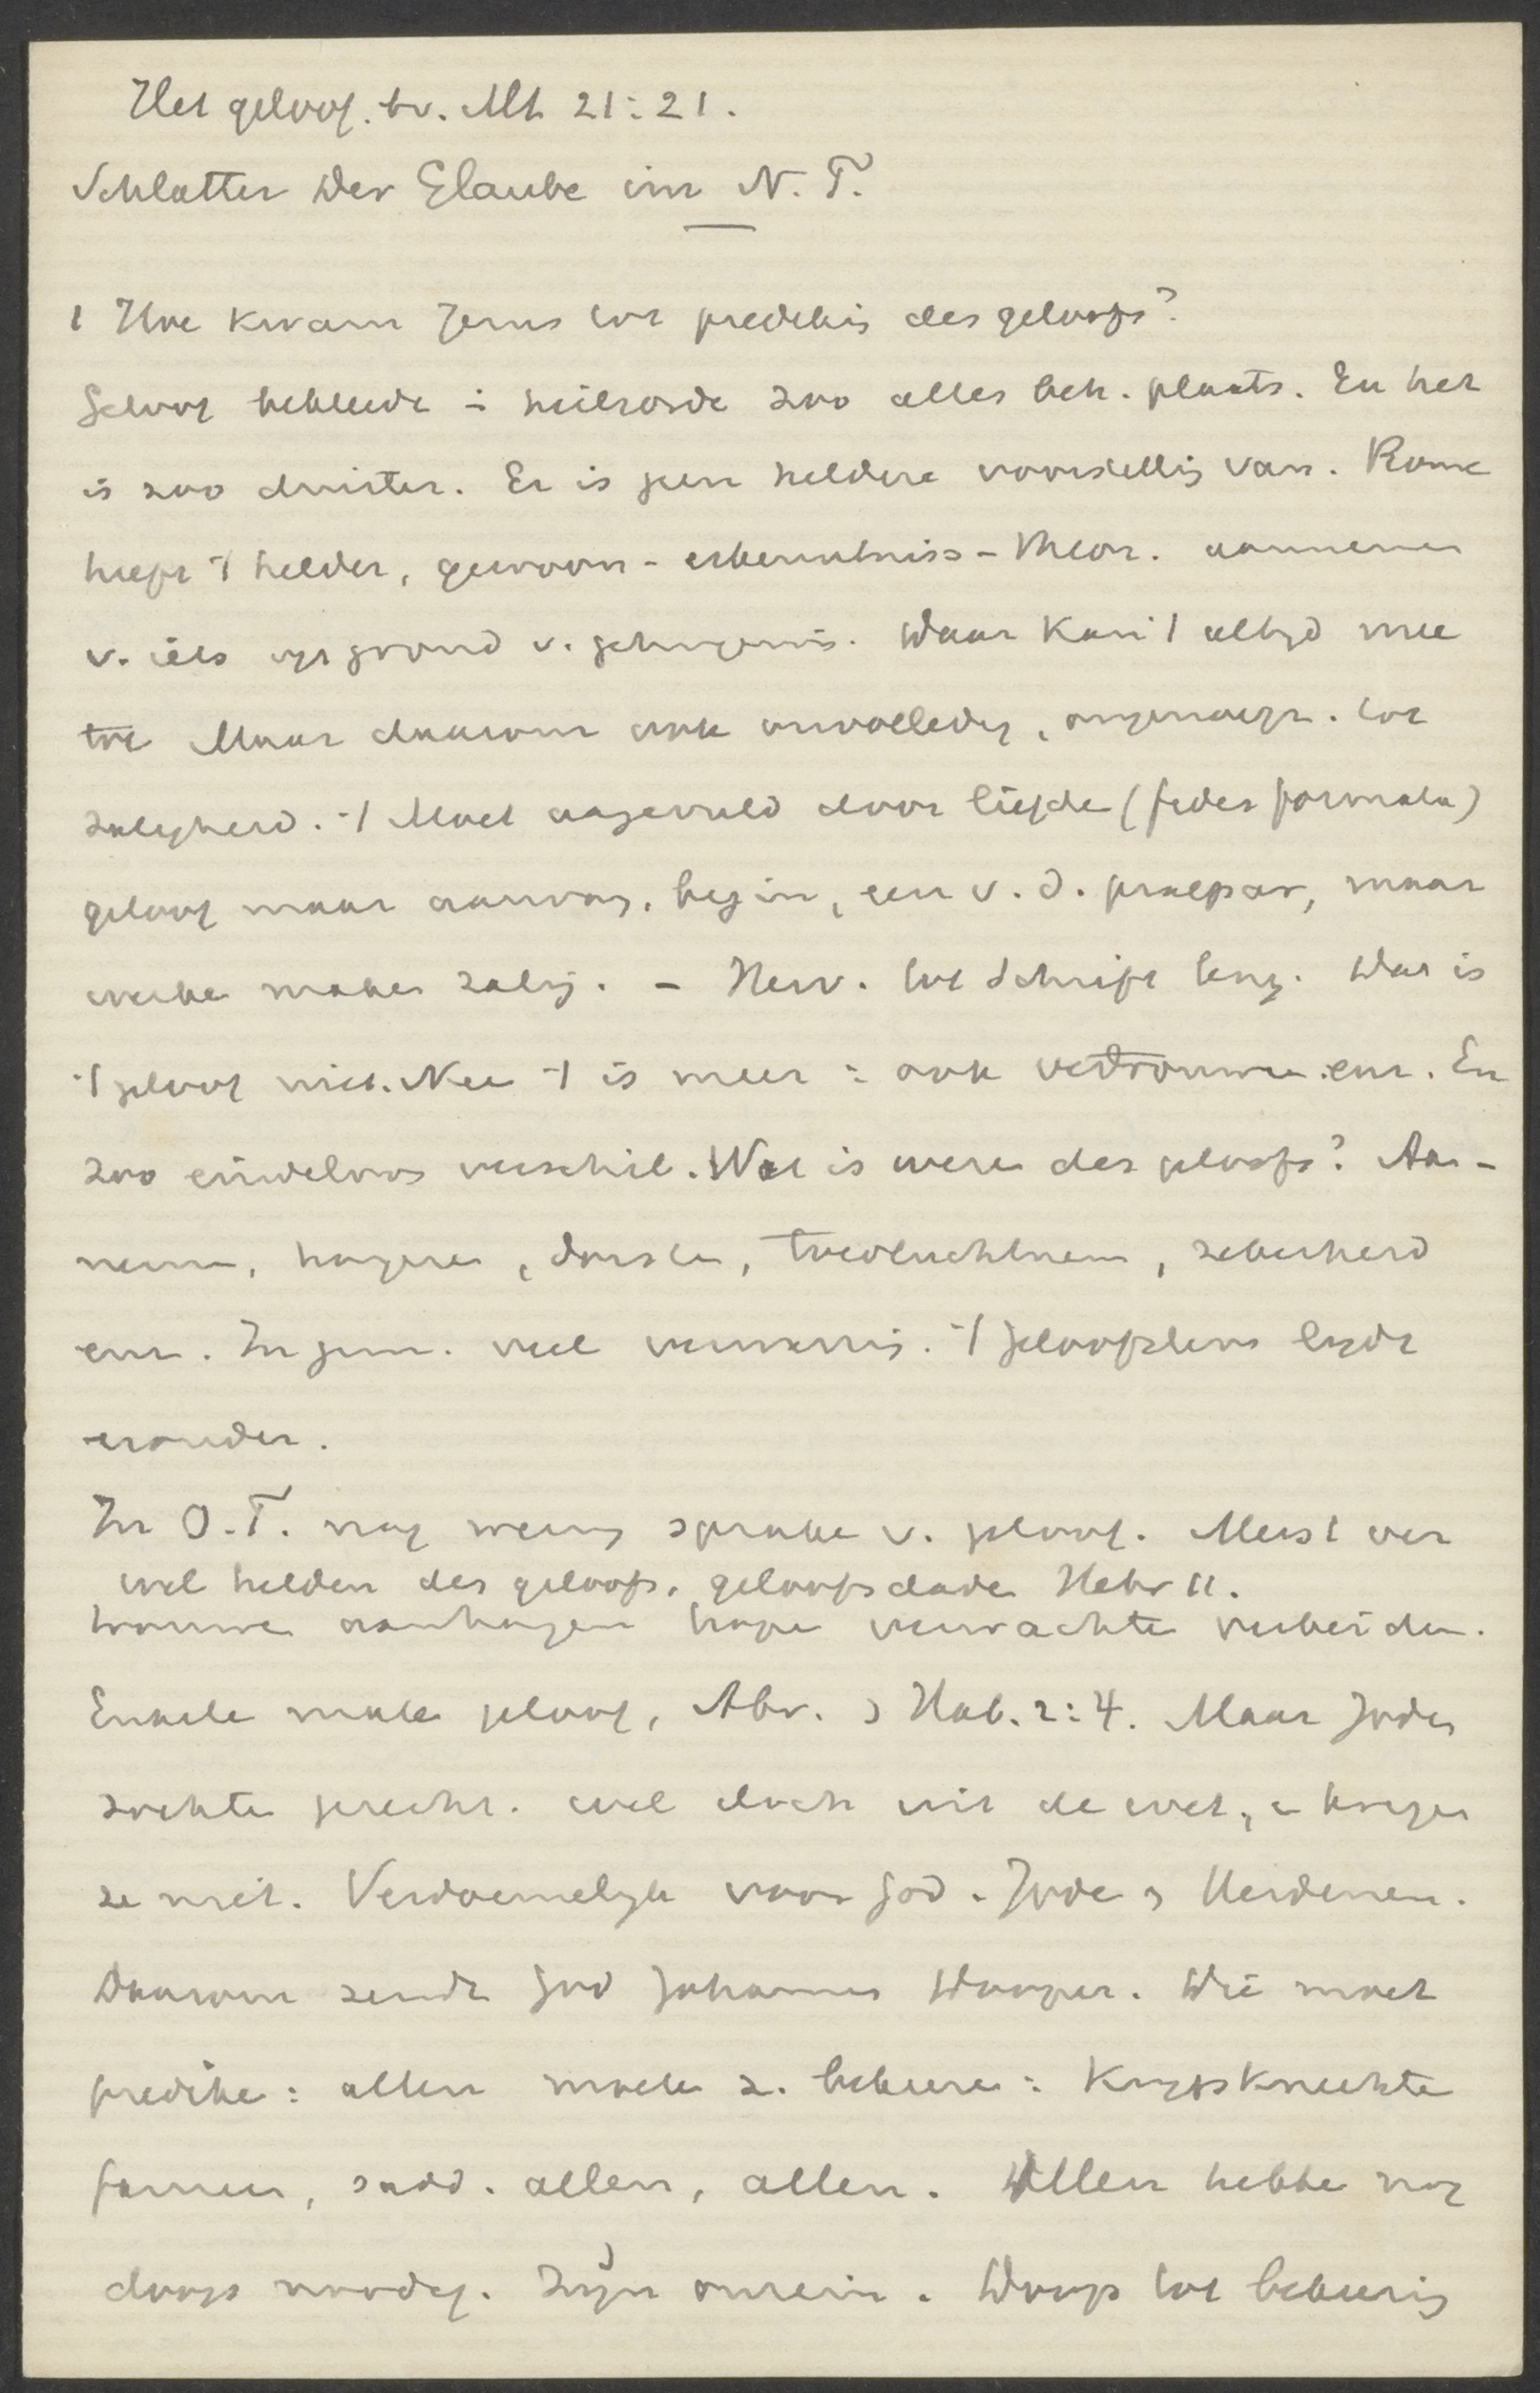 Het geloof. bv. Mt 21:21.
Schlatter Der Glaube im N.T.
1 Hoe kwam Jezus tot predikig des geloofs?
Geloof bekleede i heilsorde zoo alles beh. plaats. En het
is zoo duister. Er is geen heldere voorstellig van. Rome
heeft 't helder, gewoon - erkenntniss-theor. aannemen
v. iets op grond v. getuigenis. Daar kan 't altyd mee
toe Maar daarom ook onvolledig, ongenoegz. tot
zaligheid. 't Moet aangevuld door liefde (fides formata)
geloof maar aanvang, begin, een v. d. praepar, maar
werke make zalig. - Herv. tot Schrift terug. Dat is
't geloof niet. Nee 't is meer : ook vertrouwen enz. En
zoo eindeloos verschil. Wat is weze des geloofs? Aan-
neme, hongere, dorste, toevluchtneme, zekerheid
enz. In gem. veel verwarrig. 't Geloofsleve lydt
eronder.
In O.T. nog weinig sprake v. geloof. Meest ver
wel helden des geloofs, geloofsdade Hebr 11.
trouwe aanhangen hope verwachte verbeiden.
Enkele male geloof, Abr. , Hab. 2:4. Maar Joden
zochte gerecht. wel doch uit de wet, e kregen
ze niet. Verdoemelyk voor God. Jode , Heidenen.
Daarom zendt God Johannes Dooper. Die moet
predike : allen moete z. bekeere : Krygsknechte
farizeen, sadd. allen, allen. Allen hebbe nog
doop noodig. Zyn onrein. Doop tot bekeerig